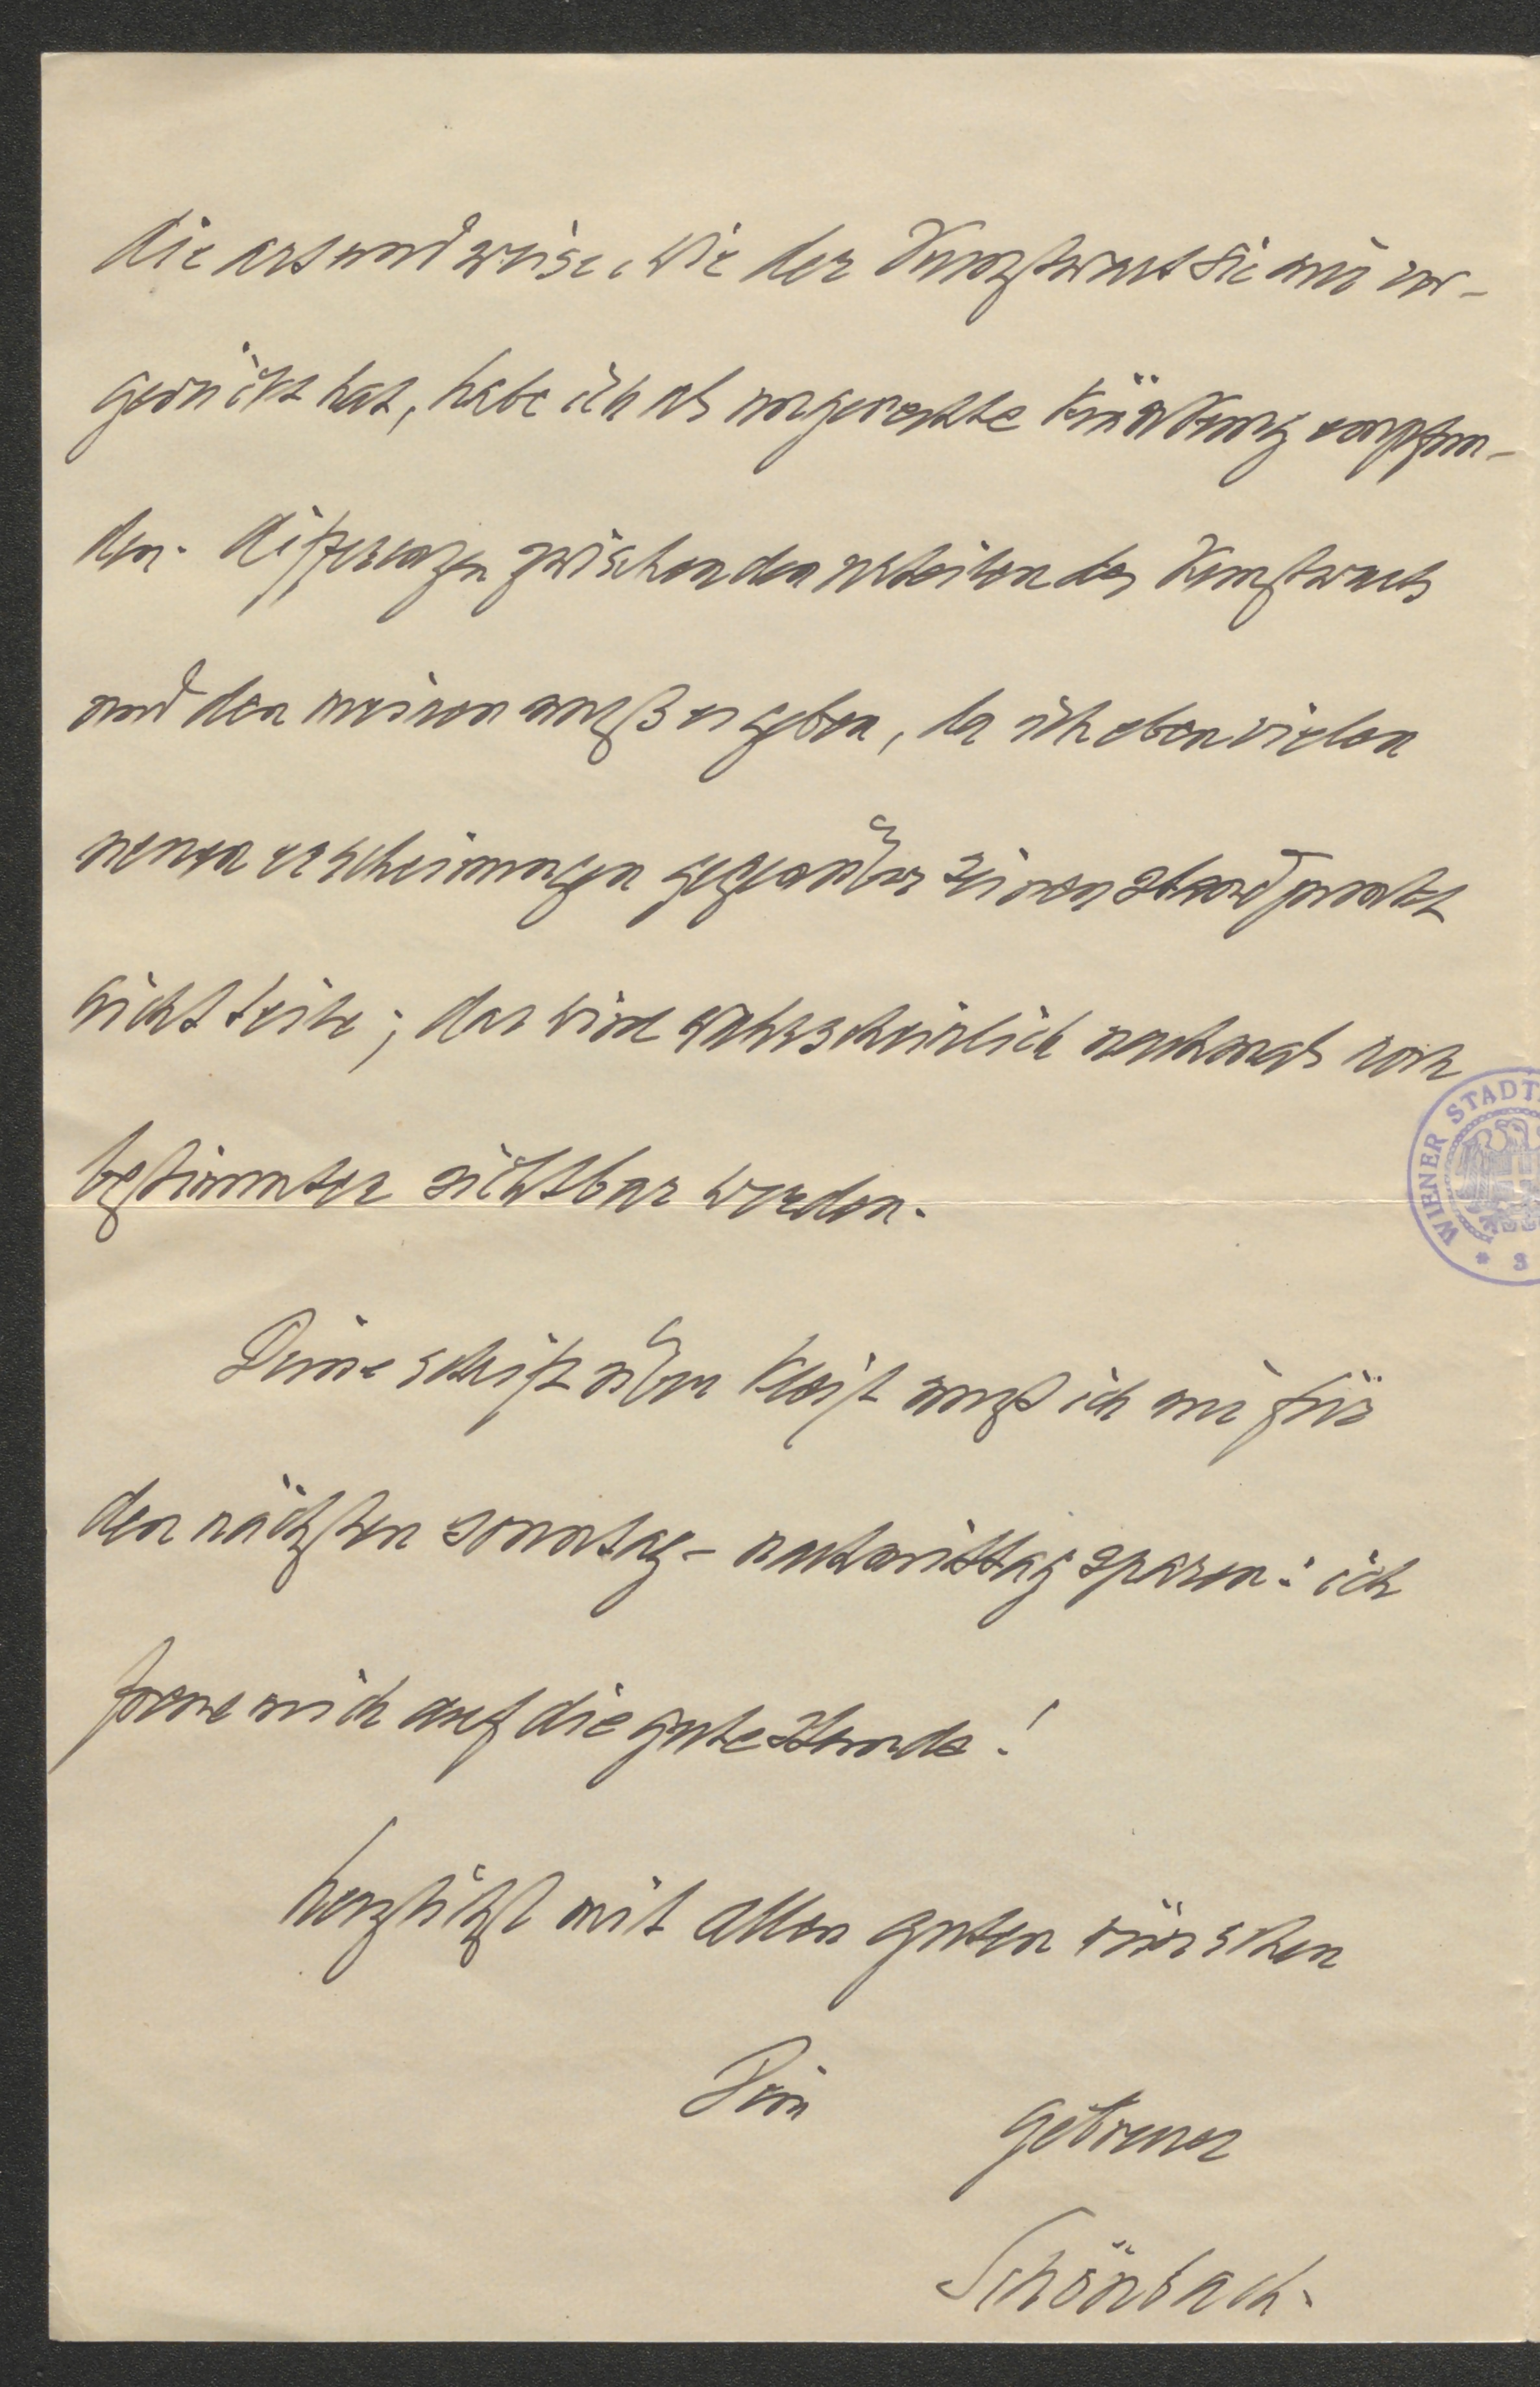 die art und weise, wie der Kunstwart sie mir vor-
gerückt hat, habe ich als ungerechte kränkung empfun-
den. differenzen zwischen den urteilen des Kunstwarts
und den meinen muß es geben, da ich eben vielen
neuen erscheinungen gegenüber seinen standpunkt
nicht teile; das wird wahrscheinlich nachmals noch
bestimmter sichtbar werden.
Deine schrift über Kleist muß ich mir für
den nächsten sonntag-nachmittag sparen: ich
freue mich auf die gute stunde!
herzlichst mit allen guten wünschen
Dein
getreuer
Schönbach.
WIENER STADT
* 3